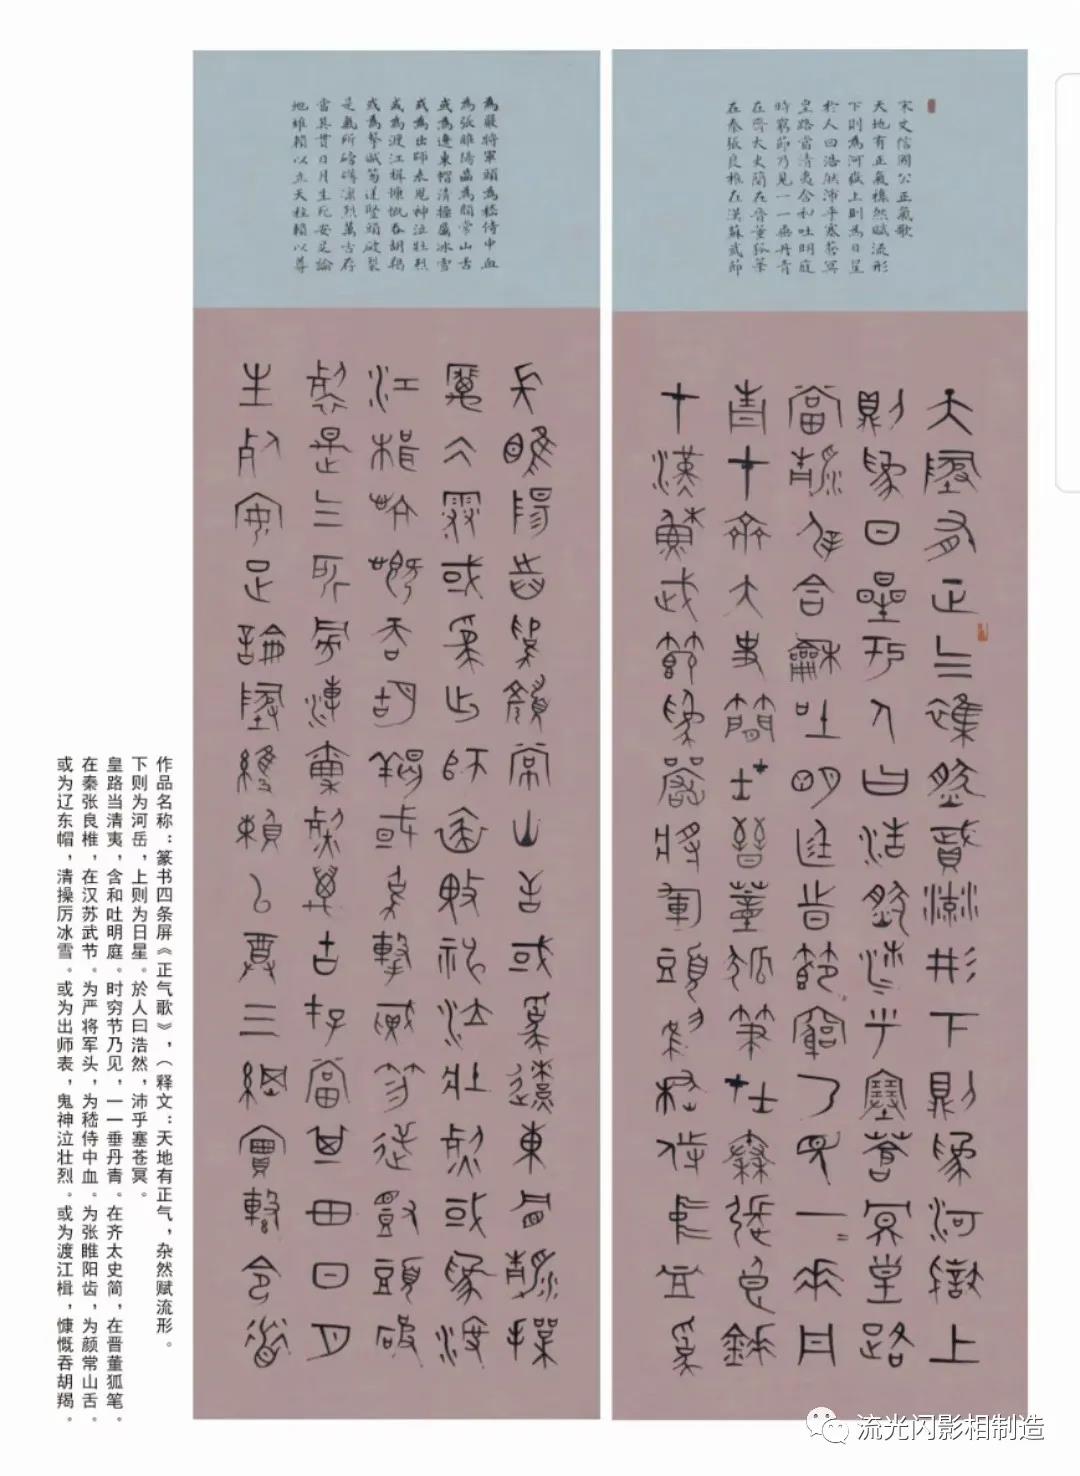 宋文信國公正氣歌
天地有正氣雜然賦流形
下則為河嶽上則為日星
於人曰浩然沛乎塞蒼冥
皇路當清夷含和吐明庭
時窮節乃見一一垂丹青
在齊太史簡在晉董狐筆
在秦張良椎在漢蘇武節
天地有正气雜然賦流形下則為河嶽上
則為日星於人曰浩然沛乎塞蒼冥皇路
當清夷含和吐明庭時節窮乃見一一垂丹
青在齊大史簡在晉董狐筆在秦張良椎
在漢蘇武節為嚴將軍頭為嵇侍中血為
為嚴將軍頭為嵇侍中血
為張睢陽齒為顏常山舌
或為遼東帽清操厲冰雪
或為出師表鬼神泣壯烈
或為渡江楫慷慨吞胡羯
或為擊賊笏逆豎頭破裂
是氣所磅礴凜烈萬古存
當其貫日月生死安足論
地維賴以立天柱賴以尊
張睢陽齒為顏常山舌或為遼東帽清操
厲冰雪或為出師表鬼神泣壯烈或為渡
江楫慷慨吞胡羯或為擊賊笏逆豎頭破
裂是气所旁凜烈萬古存當其貫日月
生死安足論地維賴以尊三綱實繫命道
作品名称：篆书四条屏《正气歌》，（释文：天地有正气，杂然赋流形。
下则为河岳，上则为日星。於人曰浩然，沛乎塞苍冥。
皇路当清夷，含和吐明庭。时穷节乃见，一一垂丹青。在齐太史简，在晋董狐笔。
在秦张良椎，在汉苏武节。为严将军头，为嵇侍中血。为张睢阳齿，为颜常山舌。
或为辽东帽，清操厉冰雪。或为出师表，鬼神泣壮烈。或为渡江楫，慷慨吞胡羯。
流光闪影相制造